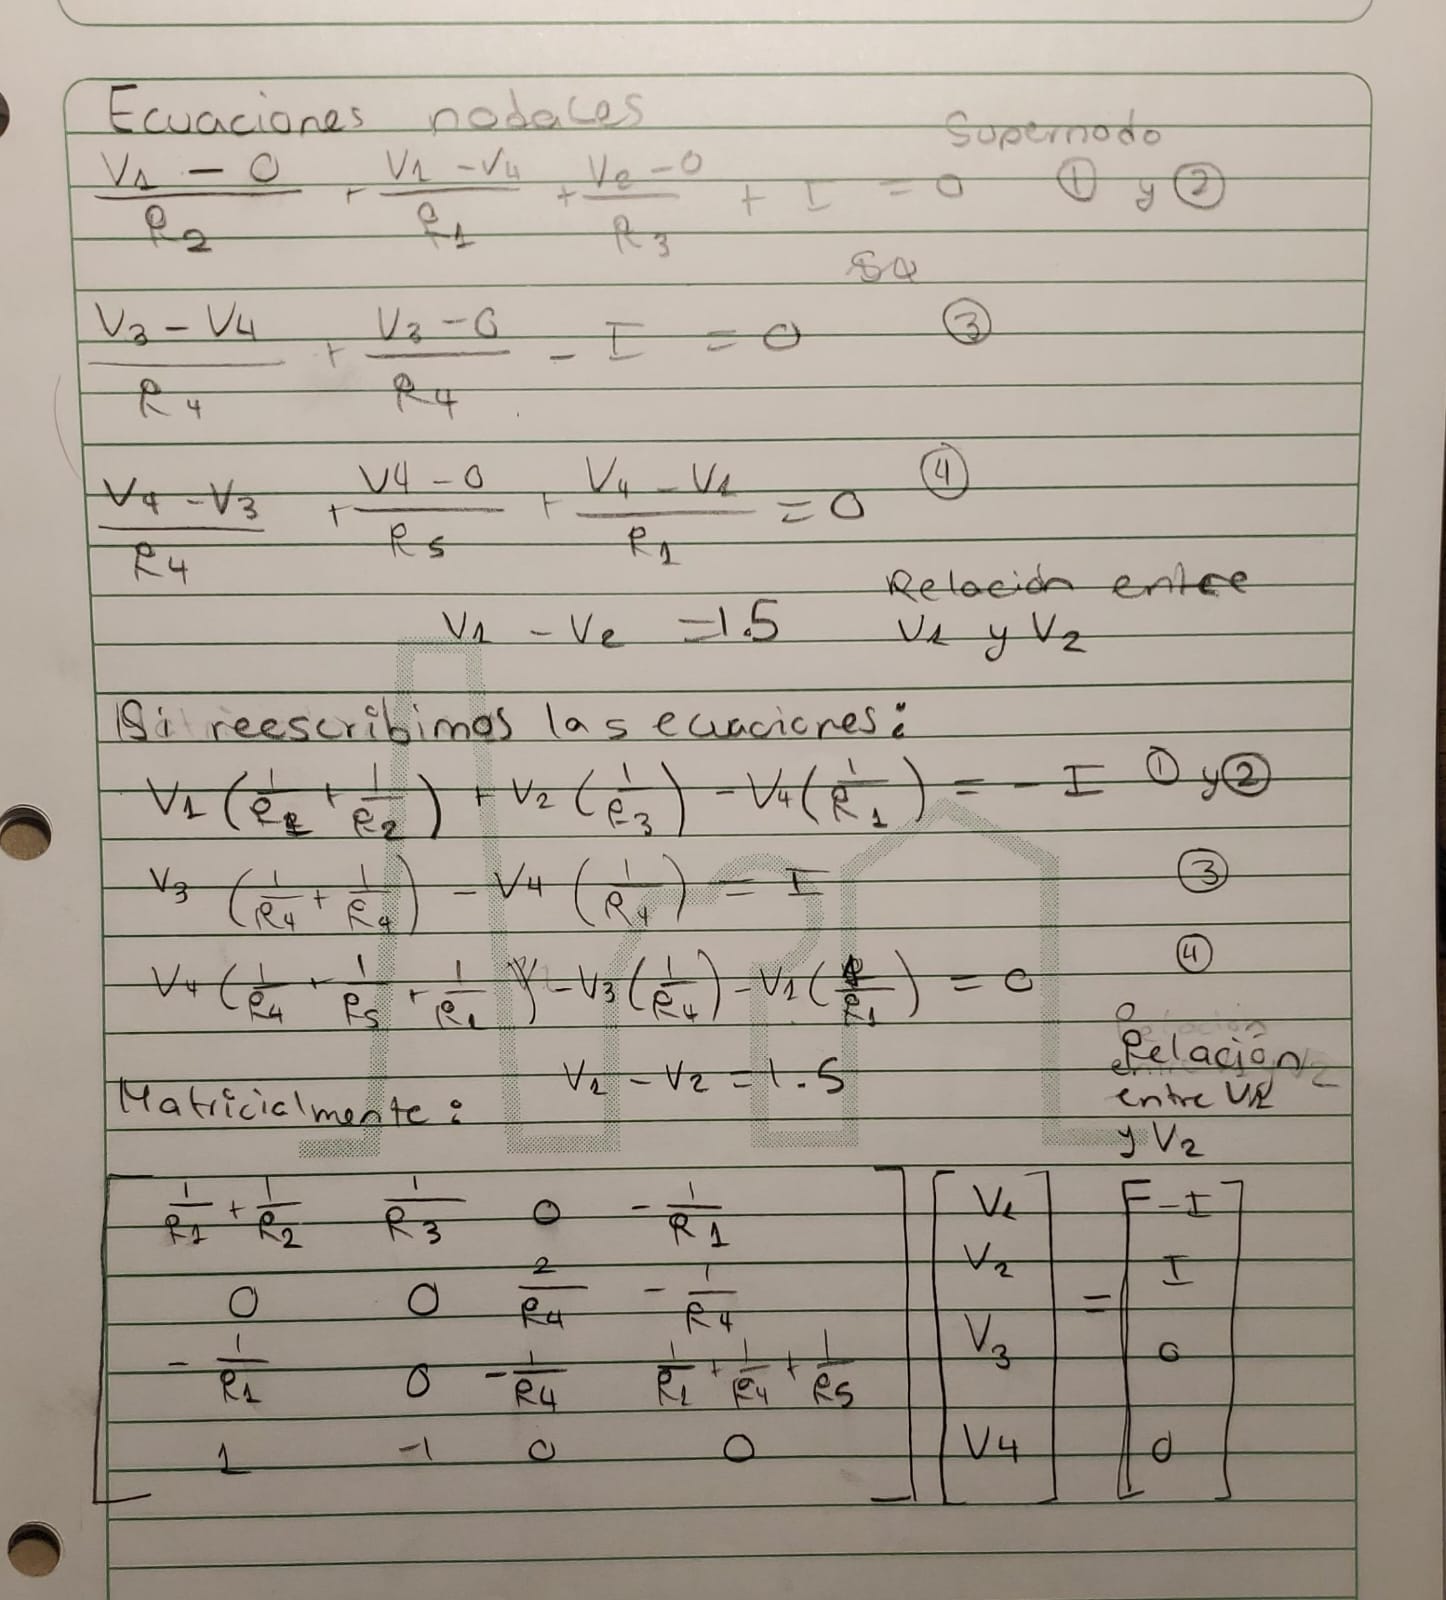 Ecuaciones nodales
Supernodo
(V1 - 0)/R2 + (V1 - V4)/R1 + (V2 - 0)/R3 + I = 0 ① y ②
(V3 - V4)/R4 + (V3 - 0)/R4 - I = 0 ③
(V4 - V3)/R4 + (V4 - 0)/R5 + (V4 - V1)/R1 = 0 ④
V1 - V2 = 1.5 Relación entre
V1 y V2
Si reescribimos las ecuaciones:
V1 (1/R1 + 1/R2) + V2 (1/R3) - V4 (1/R1) = - I ① y ②
V3 (1/R4 + 1/R4) - V4 (1/R4) = I ③
V4 (1/R4 + 1/R5 + 1/R1) - V3 (1/R4) - V1 (1/R1) = 0 ④
V1 - V2 = 1.5 Relación
entre V1
y V2
Matricialmente:
[ 1/R1 + 1/R2 1/R3 0 - 1/R1 ] [ V1 ] = [ - I ]
[ 0 0 2/R4 - 1/R4 ] [ V2 ] [ I ]
[ - 1/R1 0 - 1/R4 1/R1 + 1/R4 + 1/R5 ] [ V3 ] [ 0 ]
[ 1 -1 0 0 ] [ V4 ] [ 0 ]